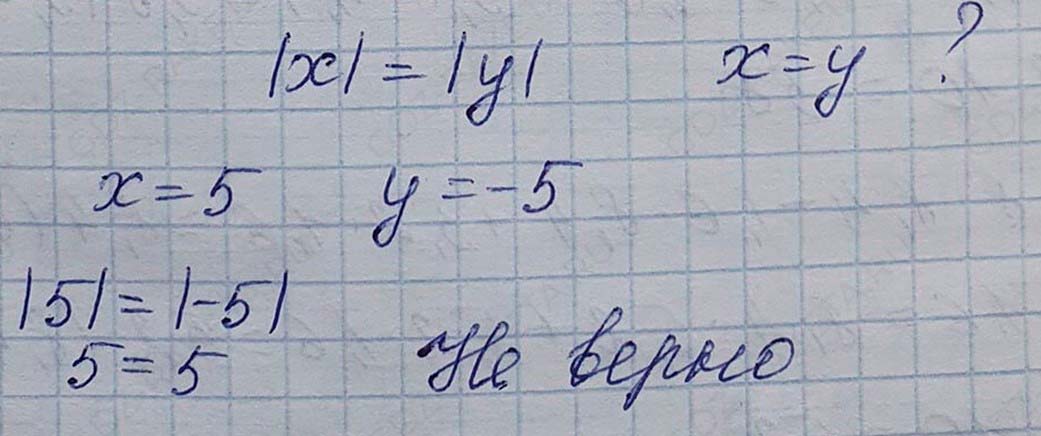 |x| = |y| x = y ?
x = 5 y = -5
|5| = |-5|
5 = 5 Не верно